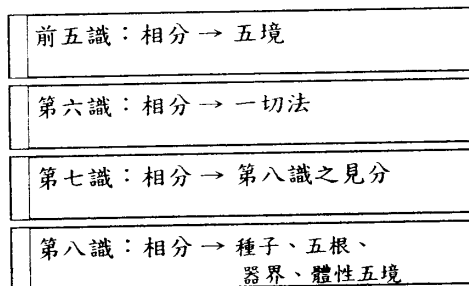 前五識：相分→五境
第六識：相分→一切法
第七識：相分→第八識之見分
第八識：相分→種子、五根、
器界、體性五境